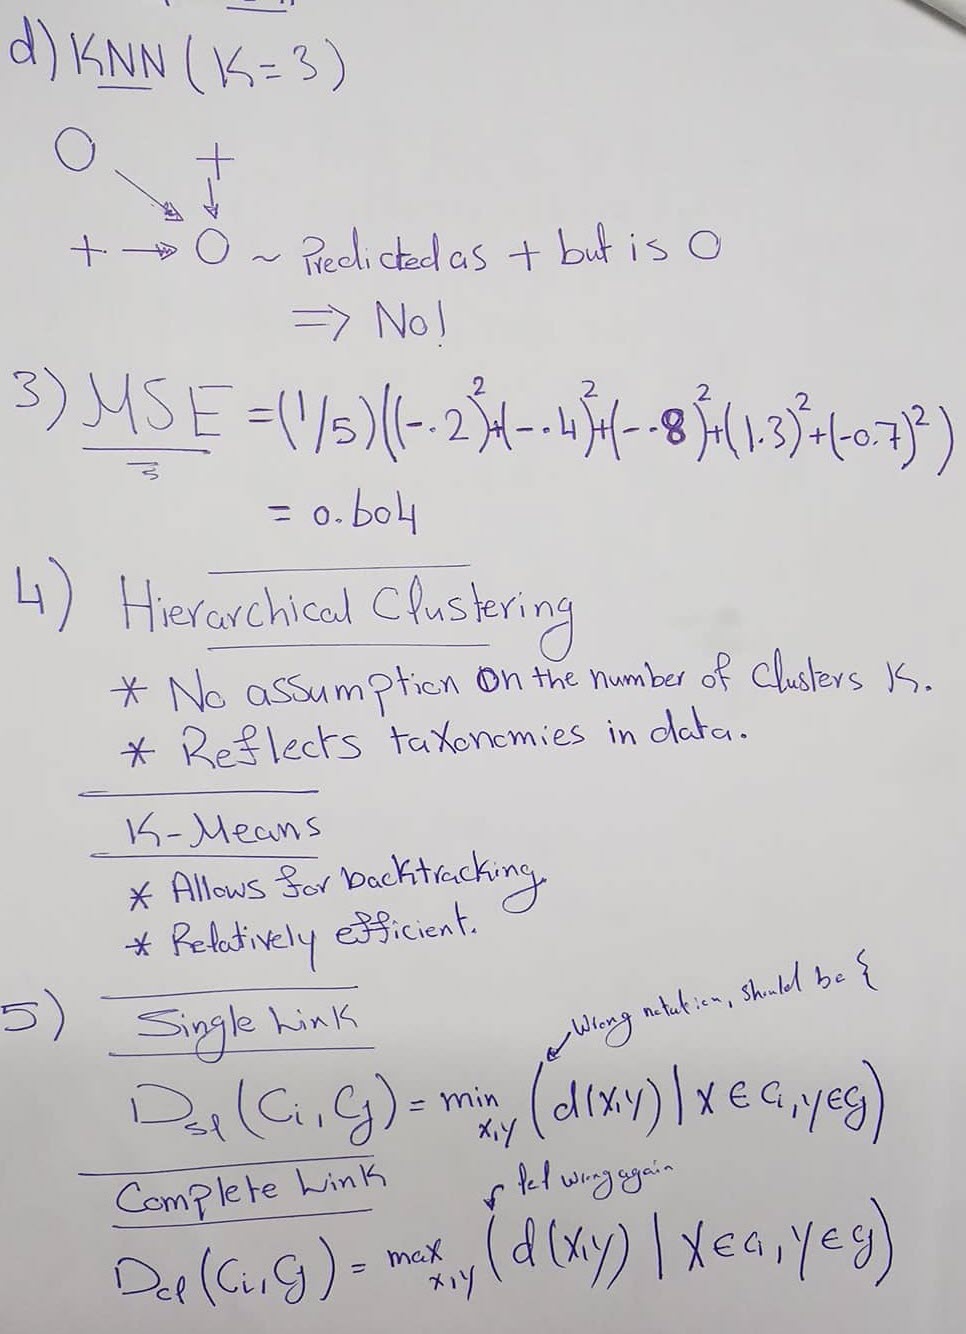 d) KNN (K=3)
O +
+ → O ~ Predicted as + but is O
⇒ No!
3) MSE = (1/5)((-.2)²+(-.4)²+(-.8)²+(1.3)²+(-0.7)²)
3
= 0.604
4) Hierarchical Clustering
* No assumption on the number of clusters K.
* Reflects taxonomies in data.
K-Means
* Allows for backtracking.
* Relatively efficient.
5) Single Link
Wrong notation, should be {
D_sl (Ci, Cj) = min x,y (d(x,y) | x ∈ Ci, y ∈ Cj)
Complete Link
wrong again
D_cl (Ci, Cj) = max x,y (d(x,y) | x ∈ Ci, y ∈ Cj)